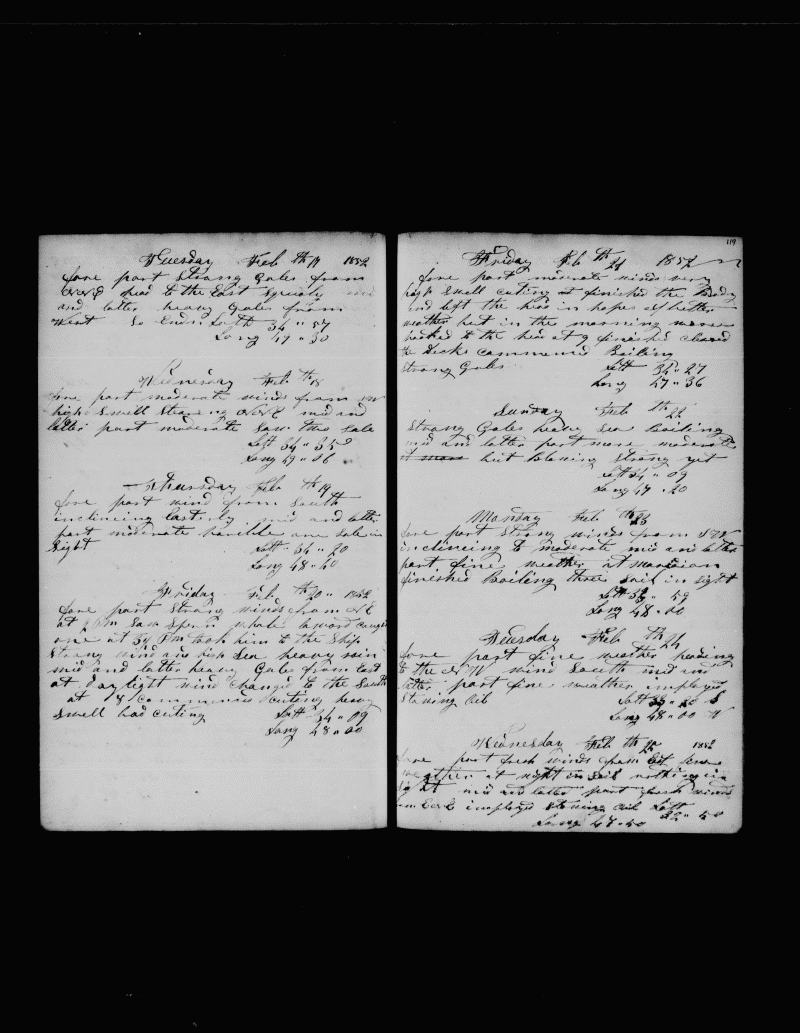 Tuesday Feb th 17 1852
fore part Strong Gales from
head to the East Squaly
and latter heavy Gales from
West So Ends Latt 34 " 57
Long 49 " 30
Wednesday Feb th 18
fore part moderate winds from
high Swell Strong mid and
latter part moderate Saw two Sale
Latt 34 " 35
Long 49 " 06
Thursday Feb th 19
fore part wind from South
inclineing Easterly mid and latter
part moderate one Sale in
Sight Latt 34 " 20
Long 48 " 40
Friday Feb th 20 " 1852
fore part Strong winds from NE
at PM Saw Sperm whale Lward caught
one at PM took him to the Ship
Strong wind and high Sea heavy rain
mid and latter heavy Gales from East
at daylight wind changed to the South
at 8 commenced cuting heavy
Swell had cuting Latt 34 " 09
Long 48 " 00
119
Friday Feb th 21 1852
fore part moderate winds very
high Swell cuting at finished the Body
and left the head in hopes of better
weather but in the morning worse
hooked to the head at 9 finished cleared
the Decks commenced Boiling
Strong Gales Latt 34 " 27
Long 47 " 36
Sunday Feb th 22
Strong Gales heavy Sea Boiling
mid and latter part more moderate
but Blowing Strong yet
Latt 34 " 09
Long 47 " 20
Monday Feb th 23
fore part Strong winds from SW
inclineing to moderate mid and latter
part fine weather at
finished Boiling three Sail in sight
Latt 33 " 59
Long 48 " 00
Tuesday Feb th 24
fore part fine weather heading
to the NW wind South mid and
latter part fine weather employed
Stowing Oil Latt S
Long 48 " 00 W
Wednesday Feb th 25 1852
fore part fresh winds from
weather at night in Sail nothing in
Sight mid and latter part fresh winds
employed Stowing Oil Latt
32 " 50
Long 47 " 50